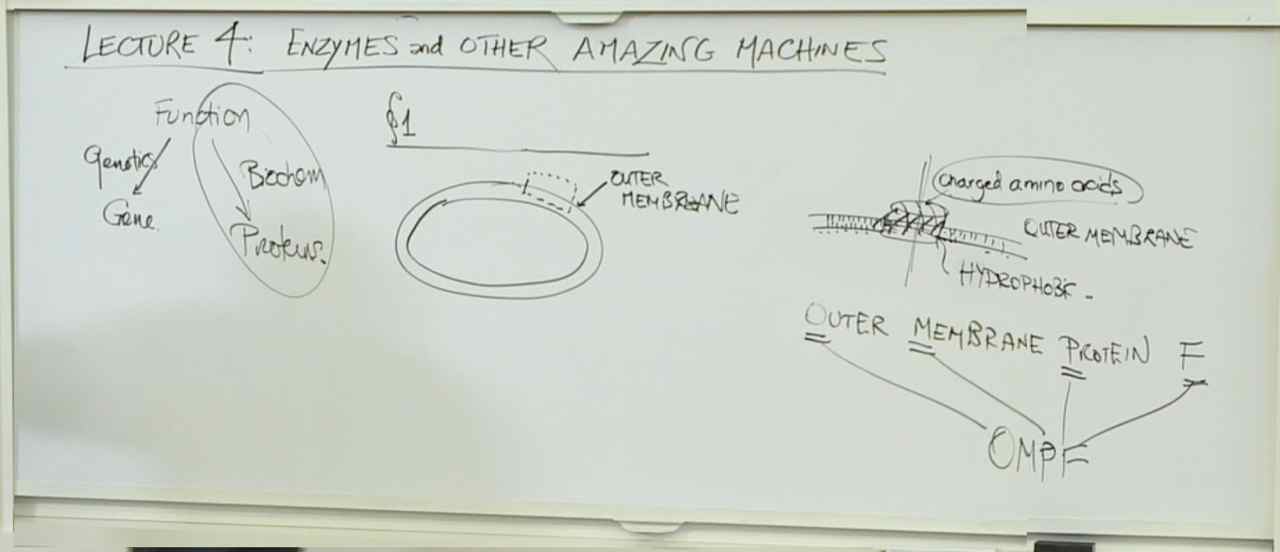 LECTURE 4: ENZYMES and OTHER AMAZING MACHINES
Function
Genetics
Gene
Biochem
Proteins.
§1
OUTER
MEMBRANE
Charged amino acids
OUTER MEMBRANE
HYDROPHOBIC
OUTER MEMBRANE PROTEIN F
OMPF